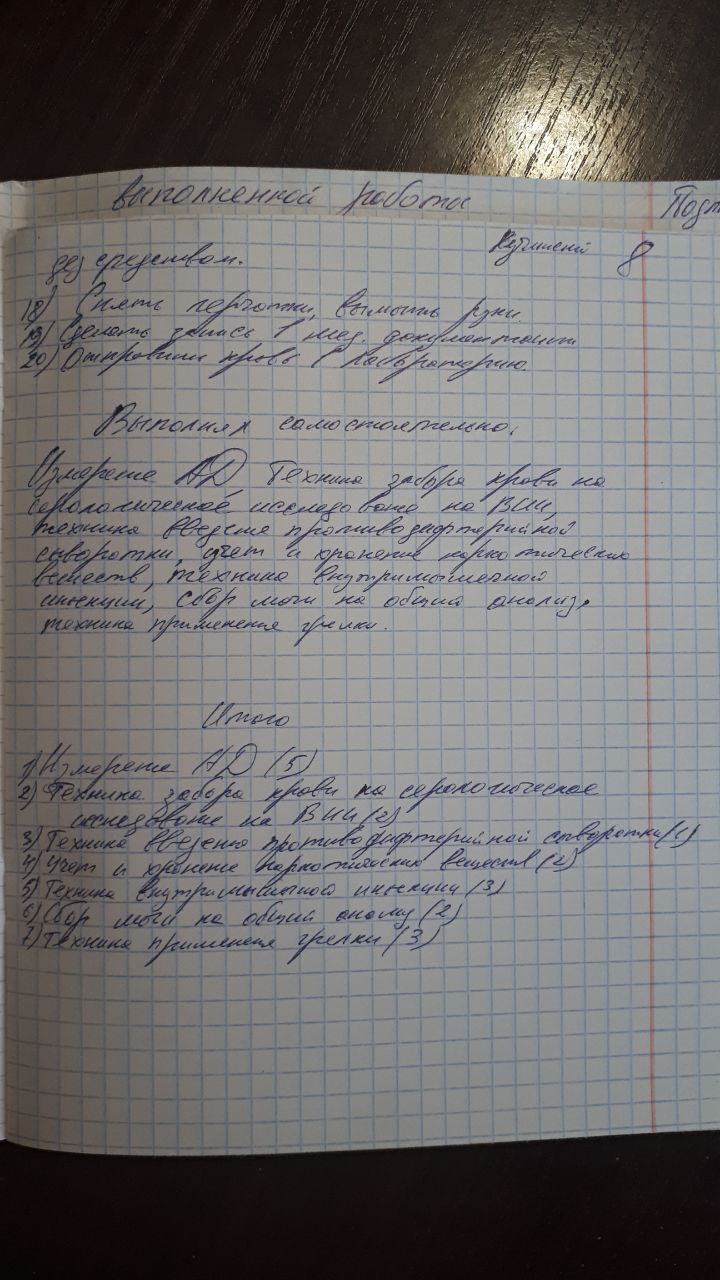 выполненной работы Подп
дез средством. 8
18) Снять перчатки, вымыть руки.
19) Сделать запись в мед. документации
20) Отправить кровь в лабораторию.
Выполнял самостоятельно.
Измерение АД, Техника забора крови на
серологическое исследование на ВИЧ,
техника введение противодифтерийной
сыворотки, учет и хранение наркотических
веществ, техника внутримышечной
инъекции, сбор мочи на общий анализ,
техника применения грелки.
Итого
1) Измерение АД (5)
2) Техника забора крови на серологическое
исследование на ВИЧ (2)
3) Техника введения противодифтерийной сыворотки (1)
4) Учет и хранение наркотических веществ (2)
5) Техника внутримышечной инъекции (3)
6) Сбор мочи на общий анализ (2)
7) Техника применения грелки (3)